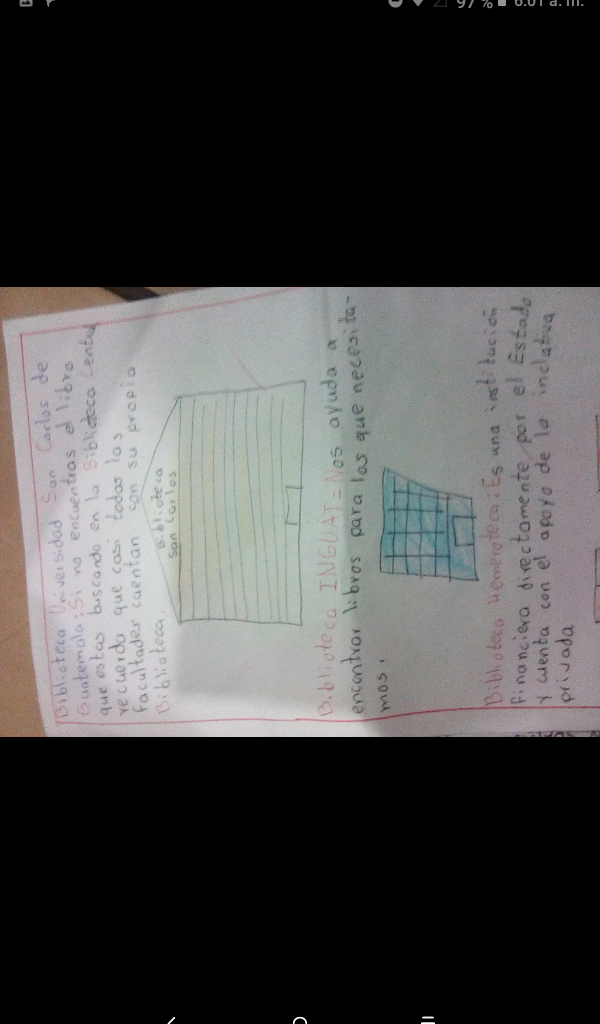 97 % 6:01 a. m.
Biblioteca Universidad San Carlos de
Guatemala: Si no encuentras el libro
que estas buscando en la Biblioteca Central
recuerda que casi todas las
facultades cuentan con su propia
Biblioteca.
Biblioteca
San Carlos
Biblioteca INGUAT= Nos ayuda a
encontrar libros para los que necesita-
mos.
Biblioteca Hemeroteca: Es una institución
financiera directamente por el Estado
y cuenta con el apoyo de la iniciativa
privada